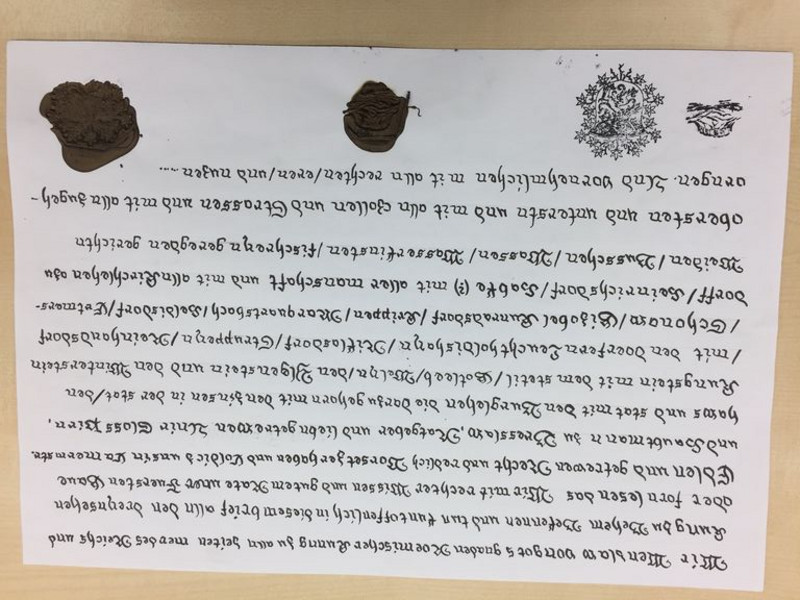 Wir Wenslaw von gots gnaden Roemischer Kunng zu alln zeiten merdes Reichs und
Kung zu Behem Bekennen und tun kunt offenlich in diesem brief alln den dreynsehen
oder forn lesen das Wir mit rechter Wissen und gutem Rate unser Fuersten Haue
Edlen und getrewen Recht und redlich Vorsetzet haben und Coldicz unsirn Camermstr.
und Haubtman n zu Bresslaw, Ratgeber und liebn getrewen Unir Sloss Pirn,
haws und stat mit den Burglehen die darzu gehorn mit den zinsen in der stat/den
Kungstein mit dem stetil/Gotleb/Weln/den Ylgenstein und den Winterstein
/mit den Doerfern Leuchtholdishayn/Niklasdorf/Struppen/Reinhandsdorf
/Schonaw/Gizobel Kunradsdorf/Krippen/Marquartsbach/Seldisdorf/Etmers-
dorff/Heinrichsdorf/Habke (?) mit aller manschaft und mit alln Kirchlehen zu
Weiden/Busschen/Wassen/Wasserfinsten/fischereyn geregden gerichten
obersten und untersten und mit alln zcollen und Strassen und mit alln zugeh-
orngen. Und vornehmlichen m it alln rechten/eren/und nuzen ....